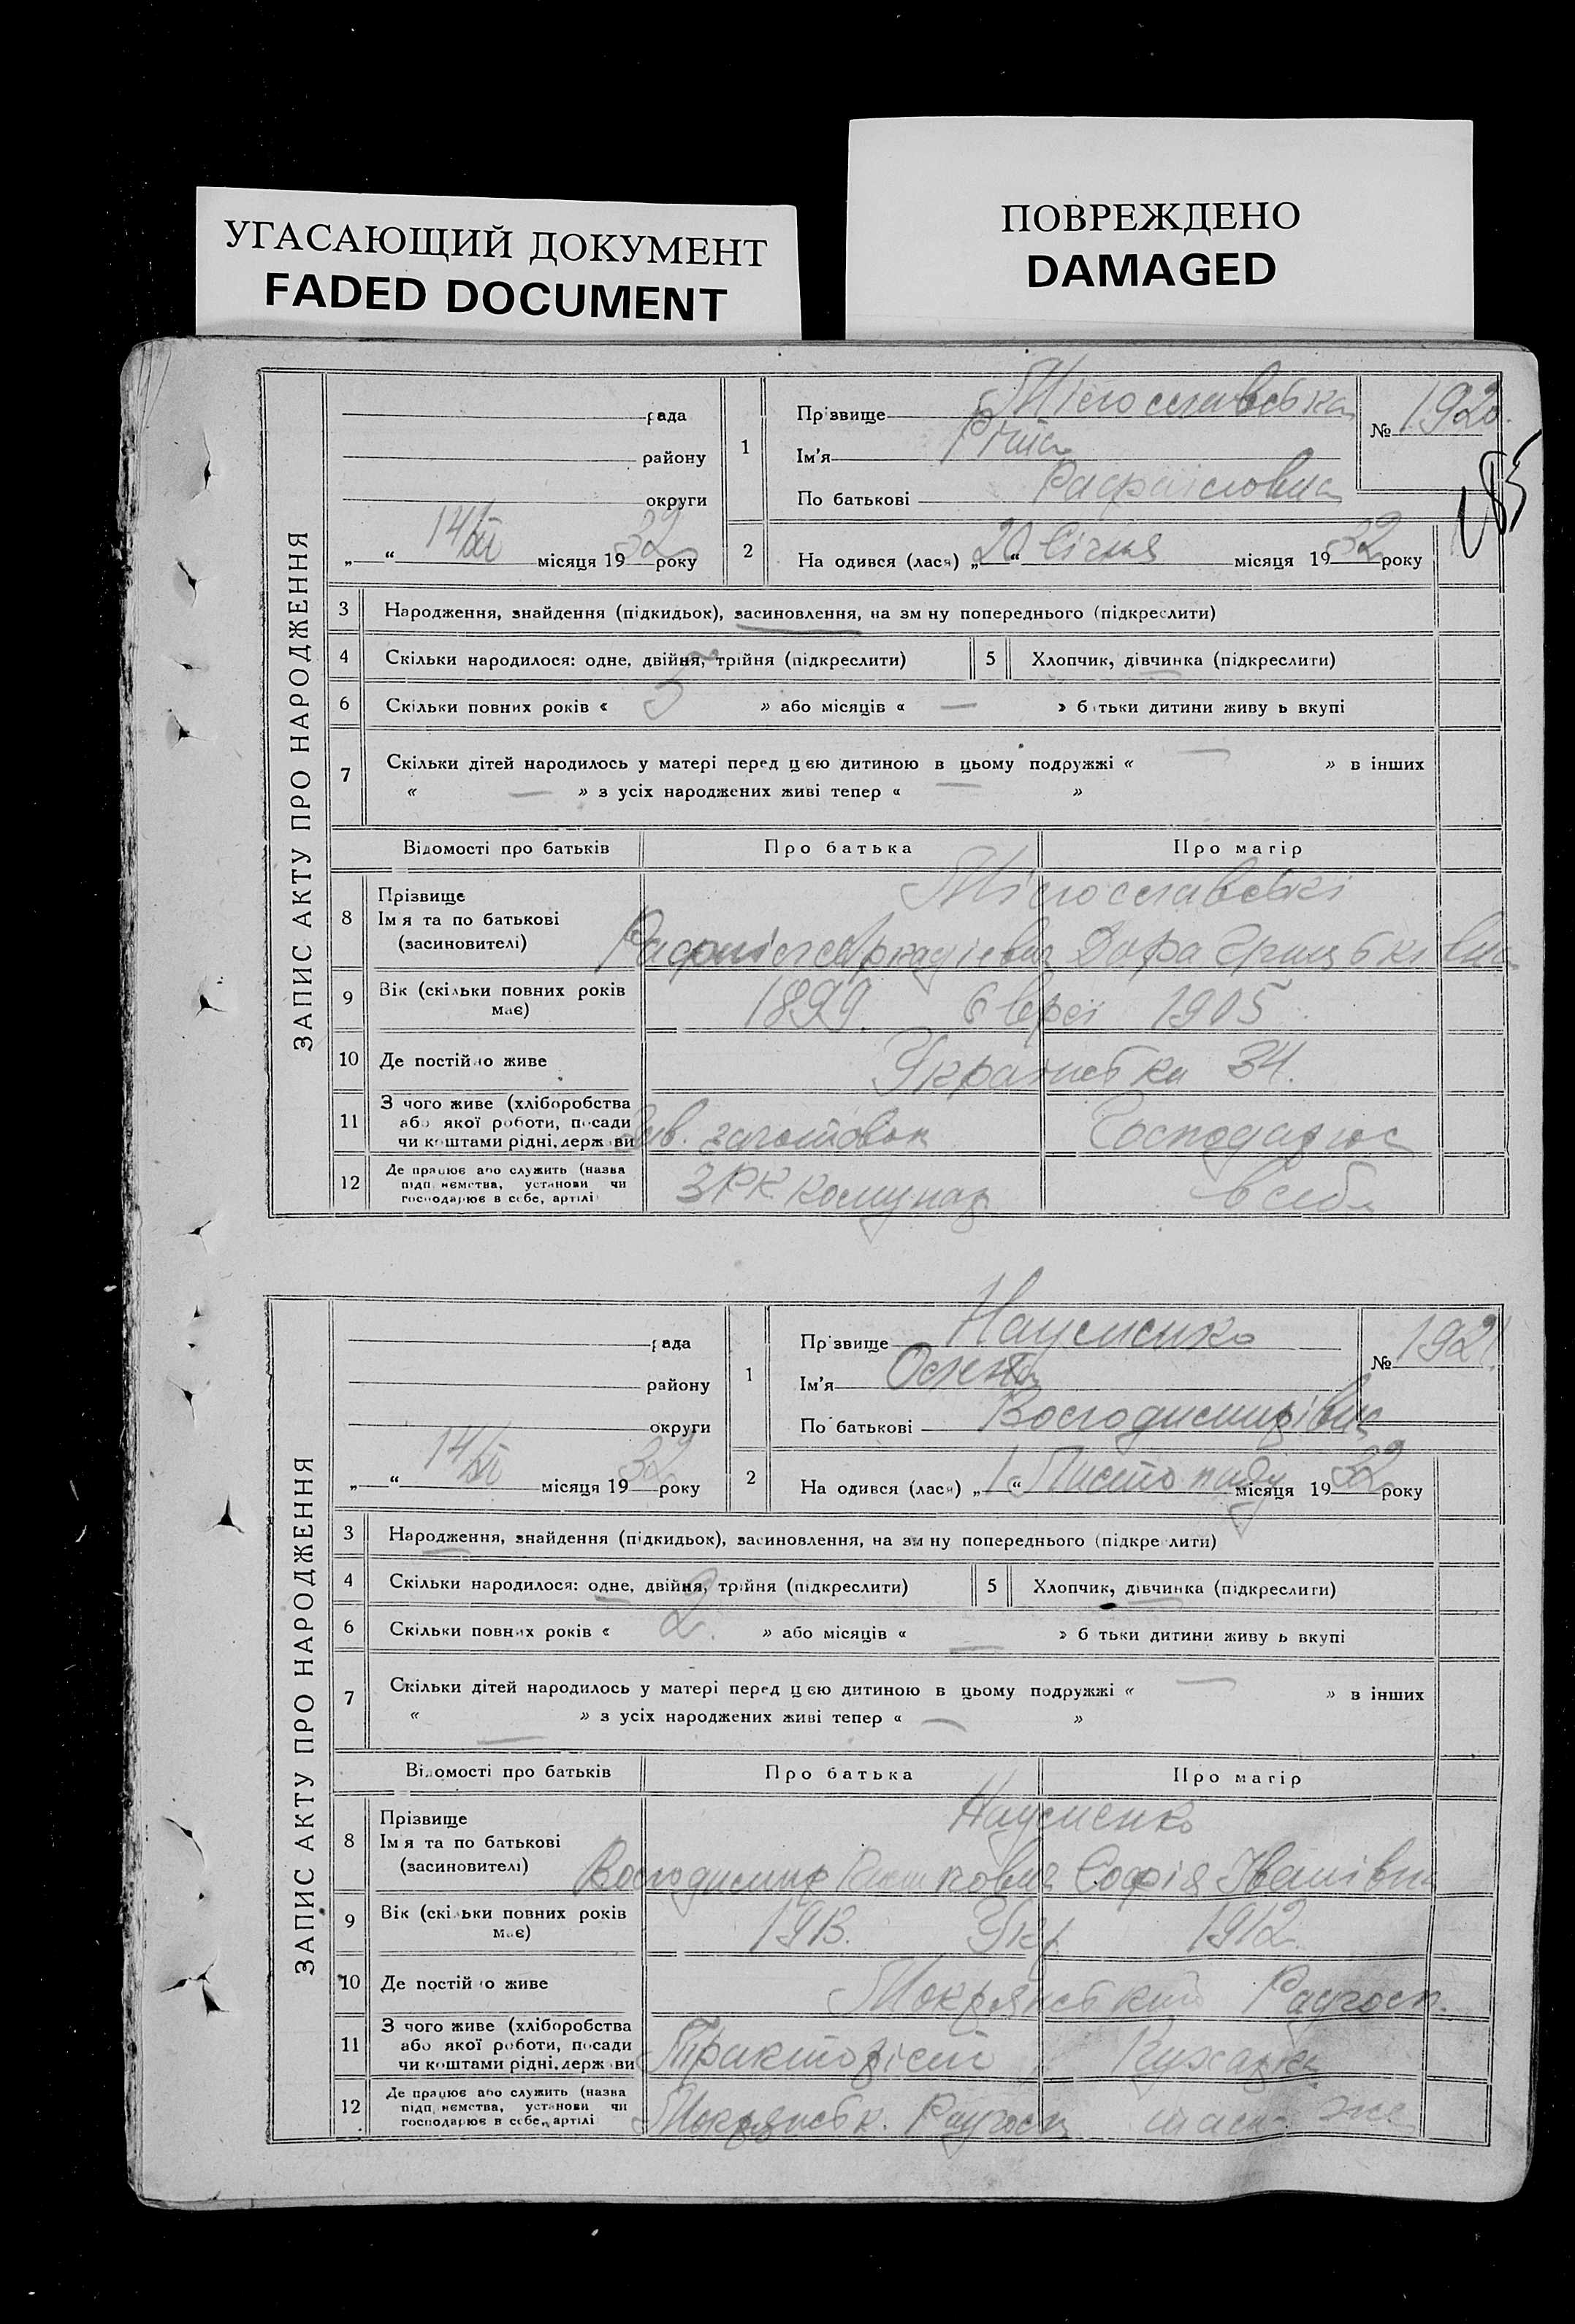 УГАСАЮЩИЙ ДОКУМЕНТ
FADED DOCUMENT
ПОВРЕЖДЕНО
DAMAGED
ЗАПИС АКТУ ПРО НАРОДЖЕННЯ
рада
району
округи
„ “ 14/XI місяця 19 32 року
1
Прізвище Мілославська
Ім'я Ріта
По батькові Рафаїловна
№ 1920.
2
На одився (лася) „ 20 “ Січня місяця 19 32 року
3 Народження, знайдення (підкидьок), засиновлення, на зм ну попереднього (підкреслити)
4 Скільки народилося: одне, двійня, трійня (підкреслити) 5 Хлопчик, дівчинка (підкреслити)
6 Скільки повних років « 5 » або місяців « — » б тьки дитини живу ь вкупі
7 Скільки дітей народилось у матері перед ц ею дитиною в цьому подружжі « — » в інших
« — » з усіх народжених живі тепер « — »
Відомості про батьків Про батька Про матір
8 Прізвище
Імя та по батькові
(засиновителі)
Мілославські
Аркадієвич Дора Грицьківна
9 Вік (скільки повних років має) 1899. Євреї 1905
10 Де постій о живе Українська 34.
11 З чого живе (хліборобства
або якої роботи, посади
чи коштами рідні, держ ви
Зав. заготовок Господарює
12 Де працює або служить (назва
підп иємства, установи чи
господарює в себе, артілі
ЗРК комунар в себе
ЗАПИС АКТУ ПРО НАРОДЖЕННЯ
рада
району
округи
„ “ 14/XI місяця 19 32 року
1
Прізвище Науменко
Ім'я
По батькові Володимирівна
№ 1921.
2
На одився (лася) „ 1 “ Листопаду місяця 19 32 року
3 Народження, знайдення (підкидьок), засиновлення, на зм ну попереднього (підкре лити)
4 Скільки народилося: одне, двійня, трійня (підкреслити) 5 Хлопчик, дівчинка (підкреслити)
6 Скільки повних років « 2. » або місяців « — » б тьки дитини живу ь вкупі
7 Скільки дітей народилось у матері перед ц ею дитиною в цьому подружжі « — » в інших
« — » з усіх народжених живі тепер « — »
Ві омості про батьків Про батька Про матір
8 Прізвище
Імя та по батькові
(засиновителі)
Науменко
Володимир Софія Іванівна
9 Вік (скі ьки повних років має) 1913. Укр 1912.
10 Де постій о живе Мокрянський Радгосп.
11 З чого живе (хліборобства
або якої роботи, посади
чи коштами рідні, держ ви
Тракторіст Кухарка
12 Де працює або служить (назва
підп иємства, установи чи
господарює в себе, артілі
Мокрянськ. Радгосп там же